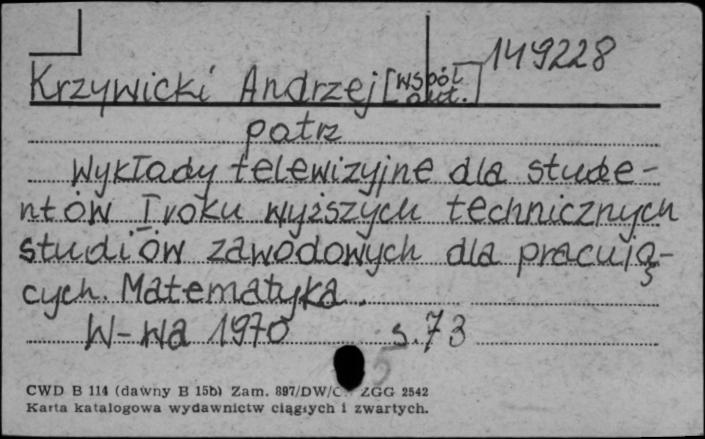 149228
Krzywicki Andrzej [współ
aut.]
patrz
Wykłady telewizyjne dla stude-
ntów I roku wyższych technicznych
studiów zawodowych dla pracują-
cych. Matematyka.
W-wa 1970 s. 73
5
CWD B 114 (dawny B 15b) Zam. 897/DW/C ZGG 2542
Karta katalogowa wydawnictw ciągłych i zwartych.